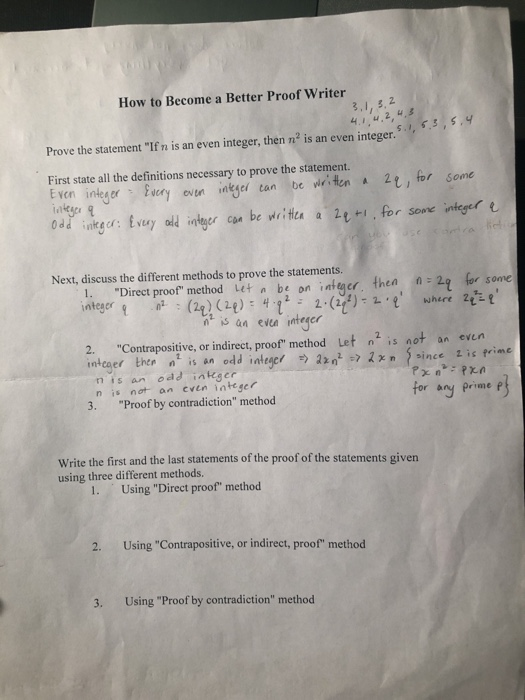 How to Become a Better Proof Writer
3.1, 3.2
4.1, 4.2, 4.3
5.1, 5.3, 5.4
Prove the statement "If n is an even integer, then n² is an even integer.
First state all the definitions necessary to prove the statement.
Even integer = Every even integer can be written a 2q, for some
integer q
Odd integer: Every odd integer can be written a 2q+1, for some integer q
Next, discuss the different methods to prove the statements.
1. "Direct proof" method Let n be an integer, then n = 2q for some
integer q n² = (2q)(2q) = 4·q² = 2·(2q²) = 2·q' where 2q² = q'
n² is an even integer
2. "Contrapositive, or indirect, proof" method Let n² is not an even
integer then n² is an odd integer => 2×n² => 2×n { since 2 is prime
n is an odd integer P×n² = P×n
n is not an even integer for any prime p}
3. "Proof by contradiction" method
Write the first and the last statements of the proof of the statements given
using three different methods.
1. Using "Direct proof" method
2. Using "Contrapositive, or indirect, proof" method
3. Using "Proof by contradiction" method